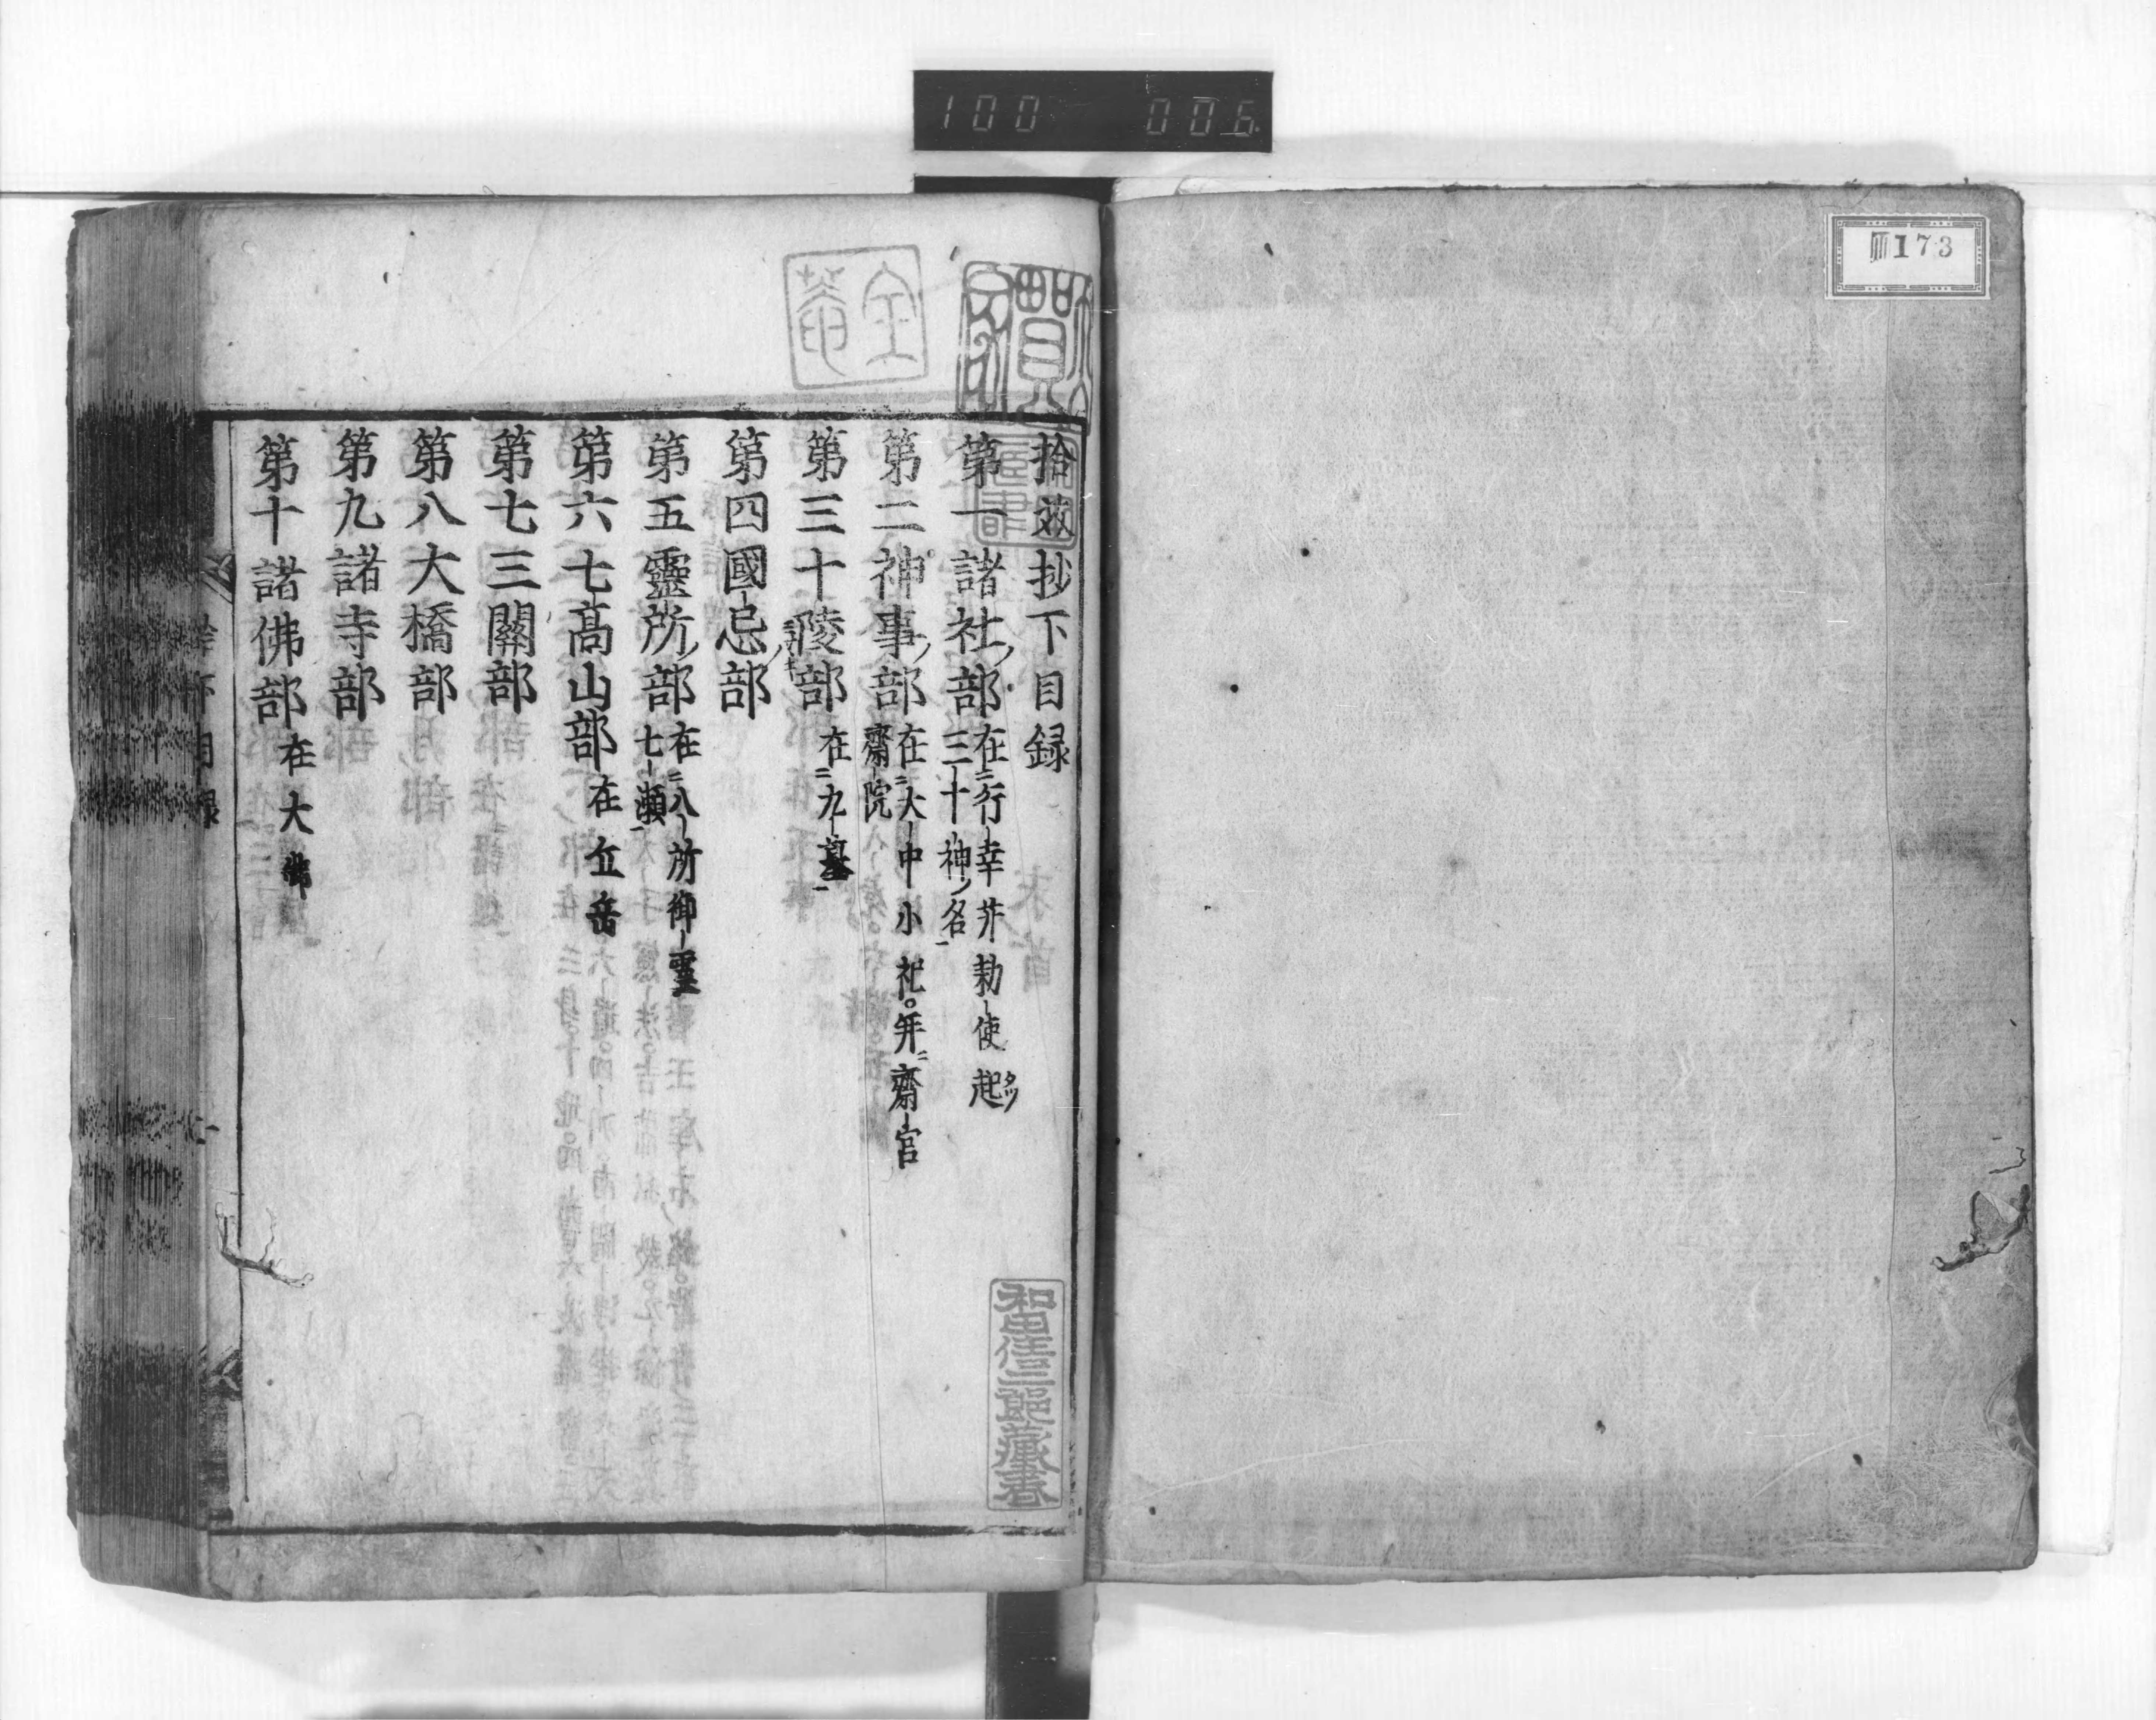 100 006
173
拾芥抄下目録
第一諸社部 在行幸并勅使起
三十神名
第二神事部 在大中小祀。并齋官
齋院
第三十陵部 在九墓
第四國忌部
第五靈所部 在八所御霊
七瀬
第六七髙山部 在五岳
第七三關部
第八大橋部
第九諸寺部
第十諸佛部 在大佛
下目録
和田信二郎蔵書